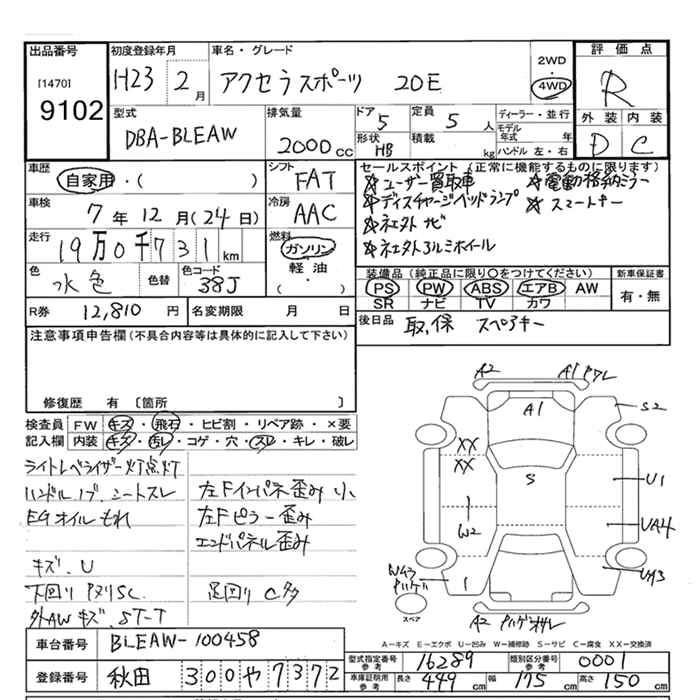 出品番号 初度登録年月 車名・グレード 2WD 評価点
[1470] H23 2月 アクセラスポーツ 20E 4WD R
9102 外装 内装
型式 排気量 ドア 定員 ディーラー・並行
DBA-BLEAW 2000cc 5 5人 モデル年式 年 D C
形状 積載 ハンドル 左・右
HB kg
車歴 シフト セールスポイント(正常に機能するものに限ります)
自家用・( ) FAT ☆ユーザー買取車 ☆電動格納ミラー
車検 冷房 ☆ディスチャージヘッドランプ ☆スマートキー
7年12月(24日) AAC ☆社外ナビ
走行 燃料 ☆社外アルミホイール
19万0千731km ガソリン
色 色替 色コード 軽油 装備品(純正品に限り〇をつけてください) 新車保証書
水色 38J ・( ) PS PW ABS エアB AW 有・無
SR ナビ TV カワ
R券 12,810円 名変期限 月 日 後日品 取,保 スペアキー
注意事項申告欄(不具合内容等は具体的に記入して下さい)
修復歴 有 〔箇所 〕
検査員 FW キズ・飛石・ヒビ割・リペア跡・×要
記入欄 内装 キズ・汚レ・コゲ・穴・スレ・キレ・破レ
ライトレベライザー灯点灯
ハンドル、ノブ、シートスレ 左Fインパネ歪み 小
EGオイルもれ 左Fピラー歪み
エンドパネル歪み
キズ、U
下回りPヌリSC 足回りC多
外AWキズ、ST-T
A2 A1
A1 S2
XX
XX S U1
W2 UA4
W43 UA3
スペア A2
A-キズ E-エクボ U-凹み W-補修跡 S-サビ C-腐食 XX-交換済
車台番号 BLEAW-100458
登録番号 秋田 300 や 7372
型式指定番号 参考 16289 類別区分番号 参考 0001
車庫証明用 参考 長さ 449cm 幅 175cm 高さ 150cm